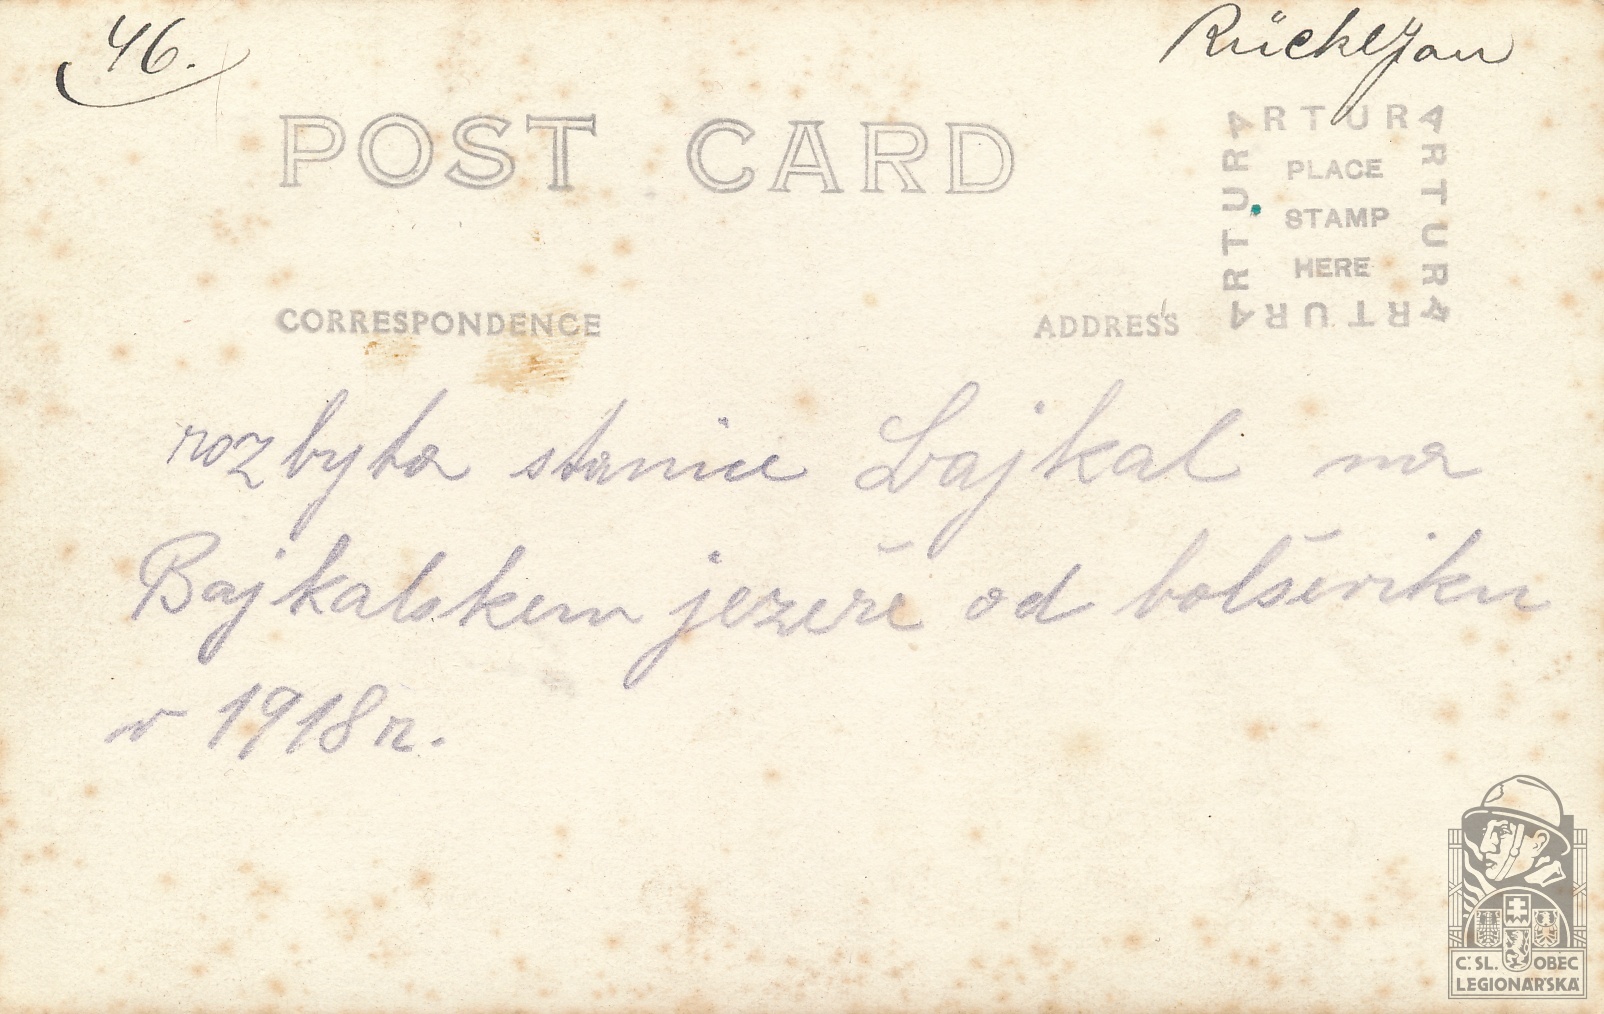 46.
Rückl Jan
POST CARD
ARTURA ARTURA ARTURA ARTURA
PLACE
STAMP
HERE
CORRESPONDENCE ADDRESS
rozbyta stanice Bajkal na
Bajkalskem jezeře od bolševiku
v 1918 r.
Č. SL. OBEC
LEGIONÁŘSKÁ